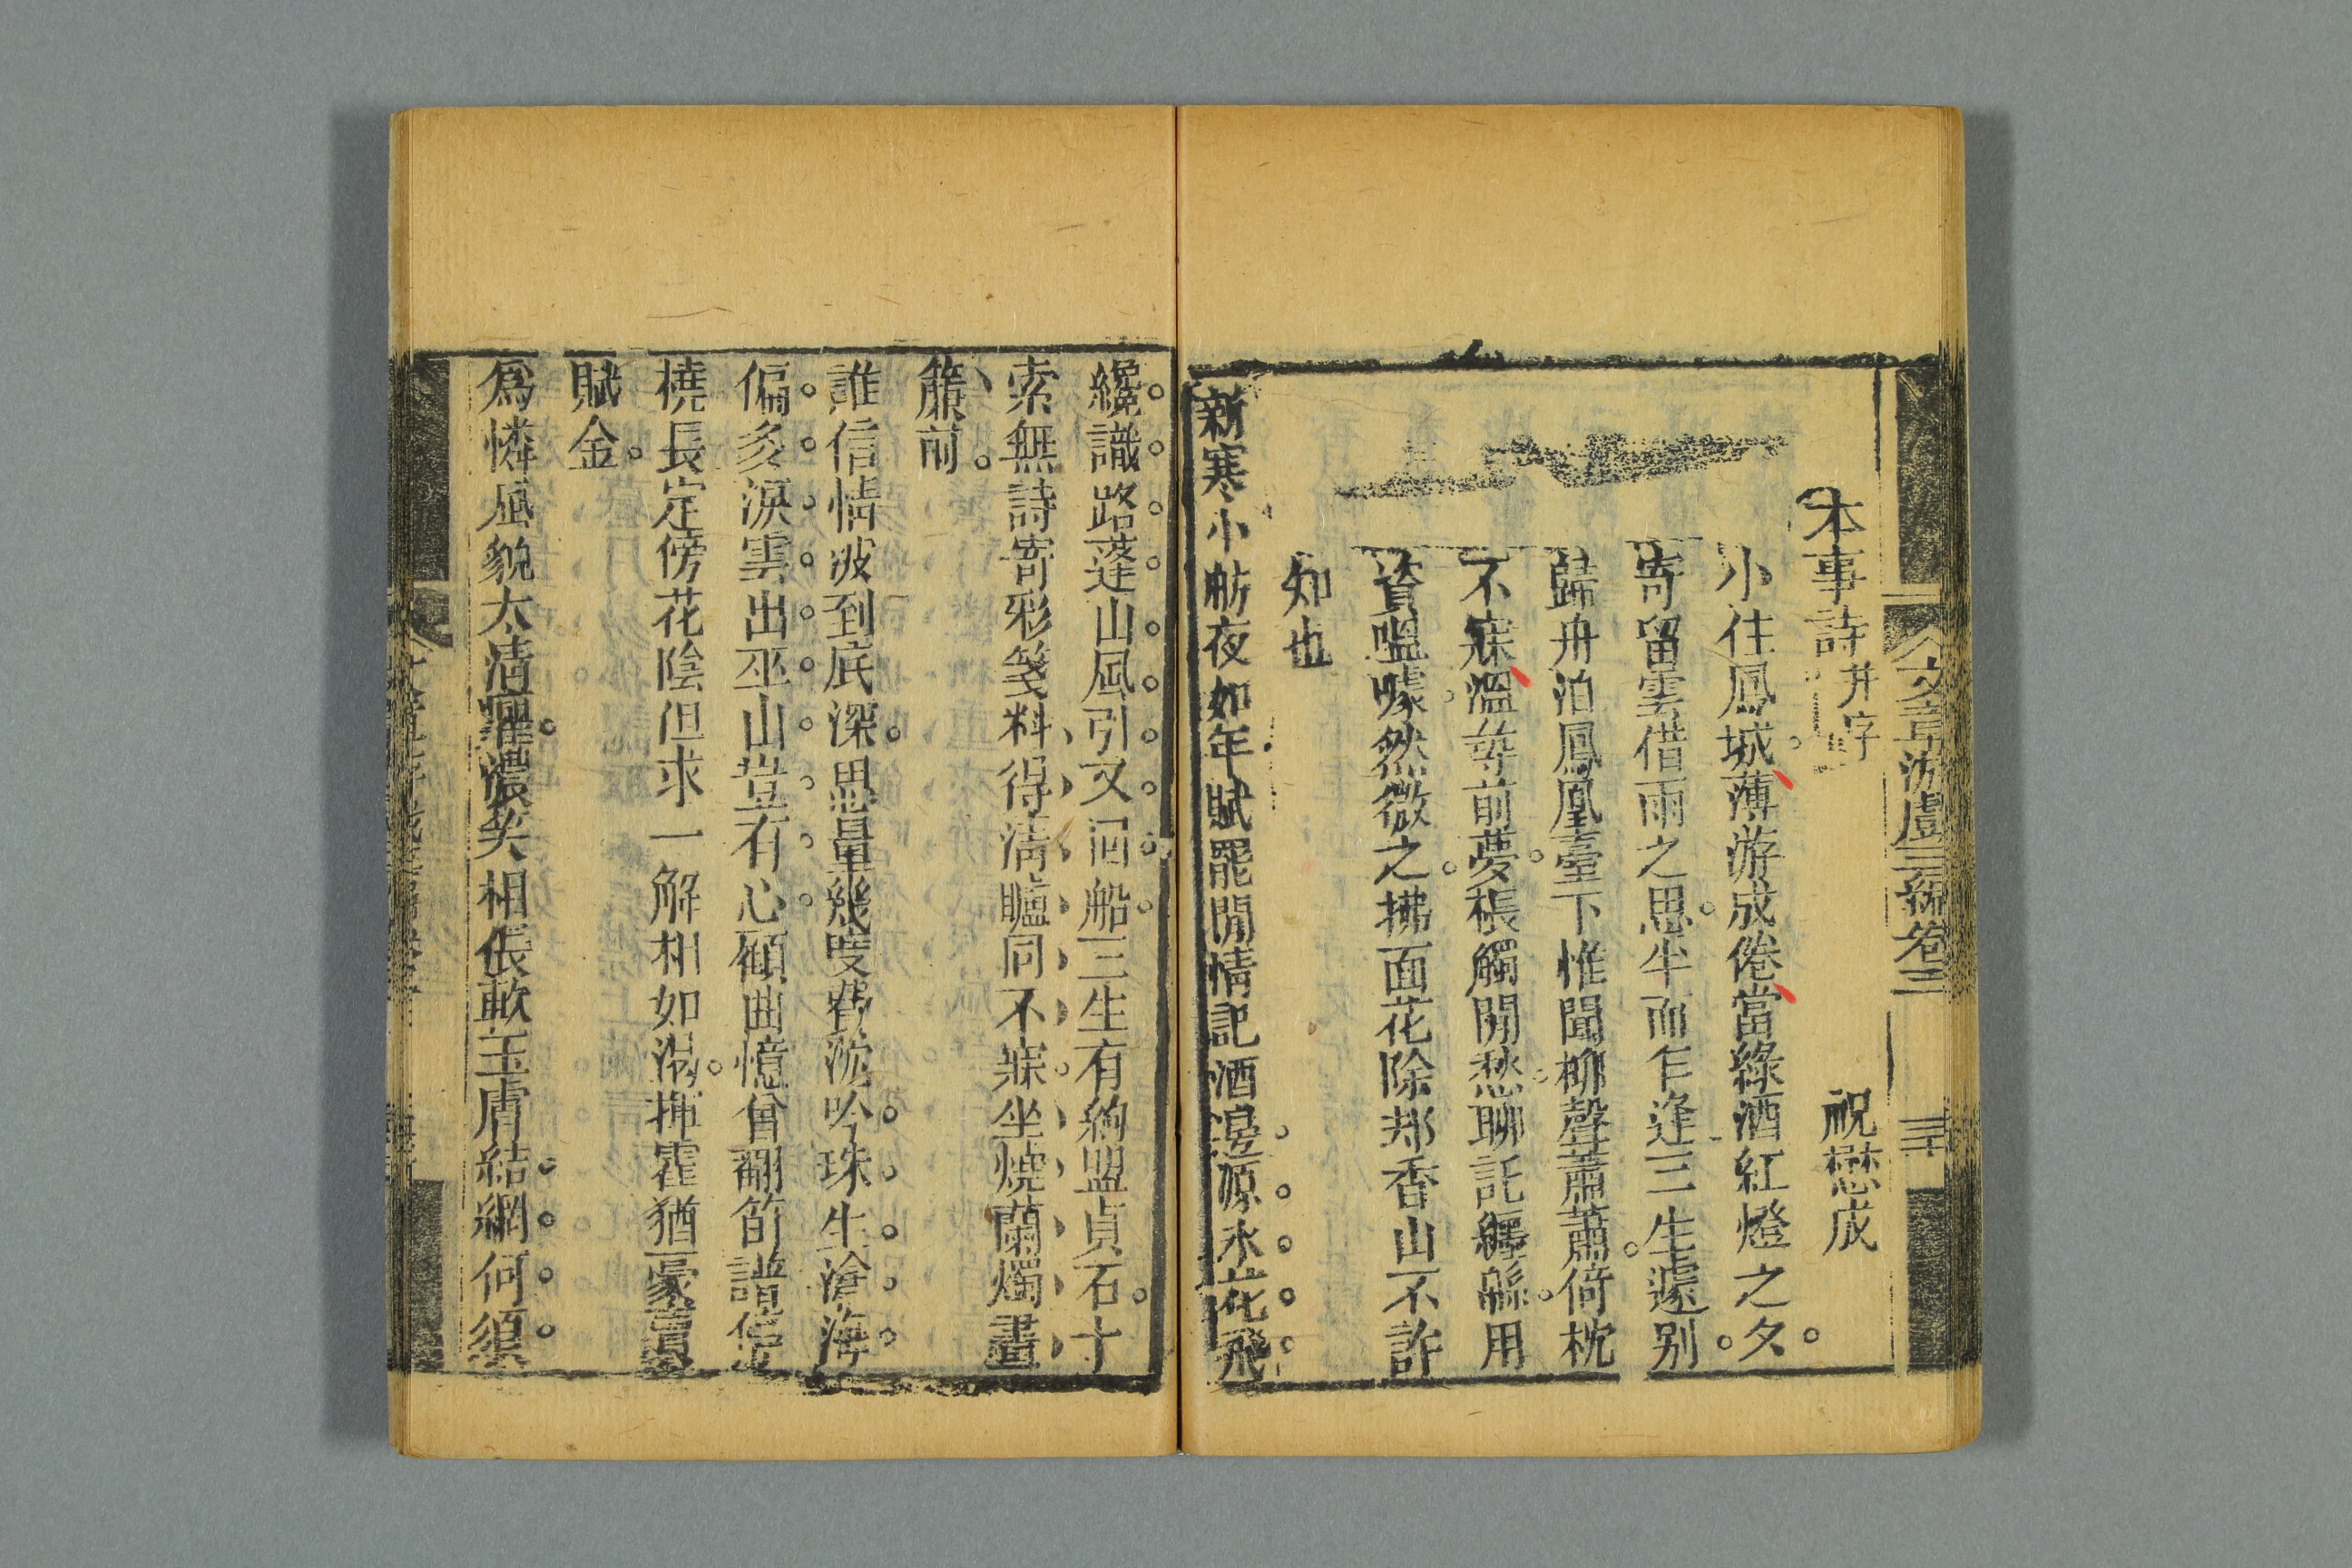 文章游戲三編卷三
三十
本事詩并序
祝懋成
小住鳳城薄游成倦當綠酒紅燈之夕
寄留雲借雨之思半面乍逢三生遽別
歸舟泊鳳凰臺下惟聞柳聲蕭蕭倚枕
不寐溫等前夢棖觸閒愁聊託緜用
資嗢噱然微之拂面花除却香山不許
知也
新寒小舫夜如年賦罷閒情記酒邊源水花飛
纔識路蓬山風引又洄船三生有約盟貞石十
索無詩寄彩箋料得清矑同不寐坐燒蘭燭畫
簾前
誰信情波到底深思量幾度費沈吟珠生滄海
偏多淚雲出巫山豈有心顧曲憶曾翻笛譜停
橈長定傍花陰但求一解相如渴揮霍猶豪賣
賦金
爲憐風貌太清羅濃笑相偎軟玉膚結網何須